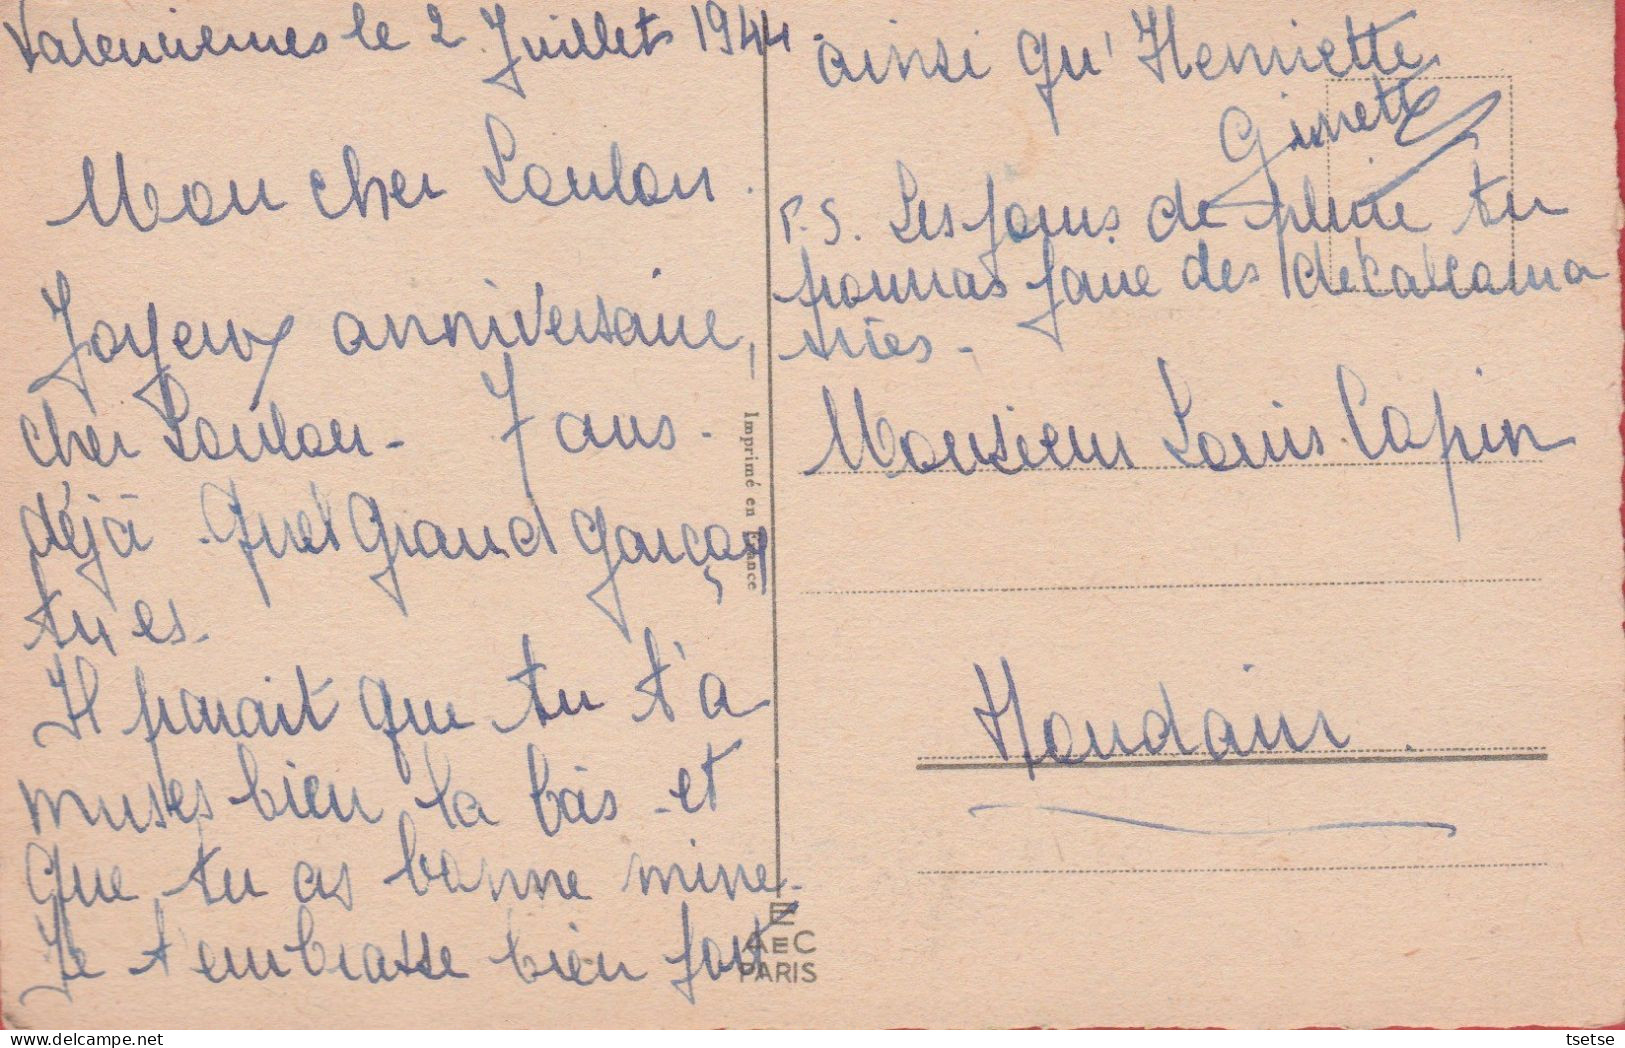 Valenciennes le 2 Juillet 1944.
Mon cher Loulou.
Joyeux anniversaire,
cher Loulou - 7 ans.
déjà. Quel grand garçon
tu es.
Il parait que tu t'a
muses bien la bàs - et
que tu as bonne mine.
Je t'embrasse bien fort
ainsi qu'Henriette.
Ginette
P.S. Les jours de pluie tu
pourras faire des décalcoma
nies -
Monsieur Louis Capin
Houdain.
Imprimé en France
E
AEC
PARIS
tsetse